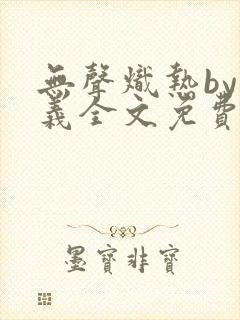 無聲熾熱by
義全文免費
墨寶非寶